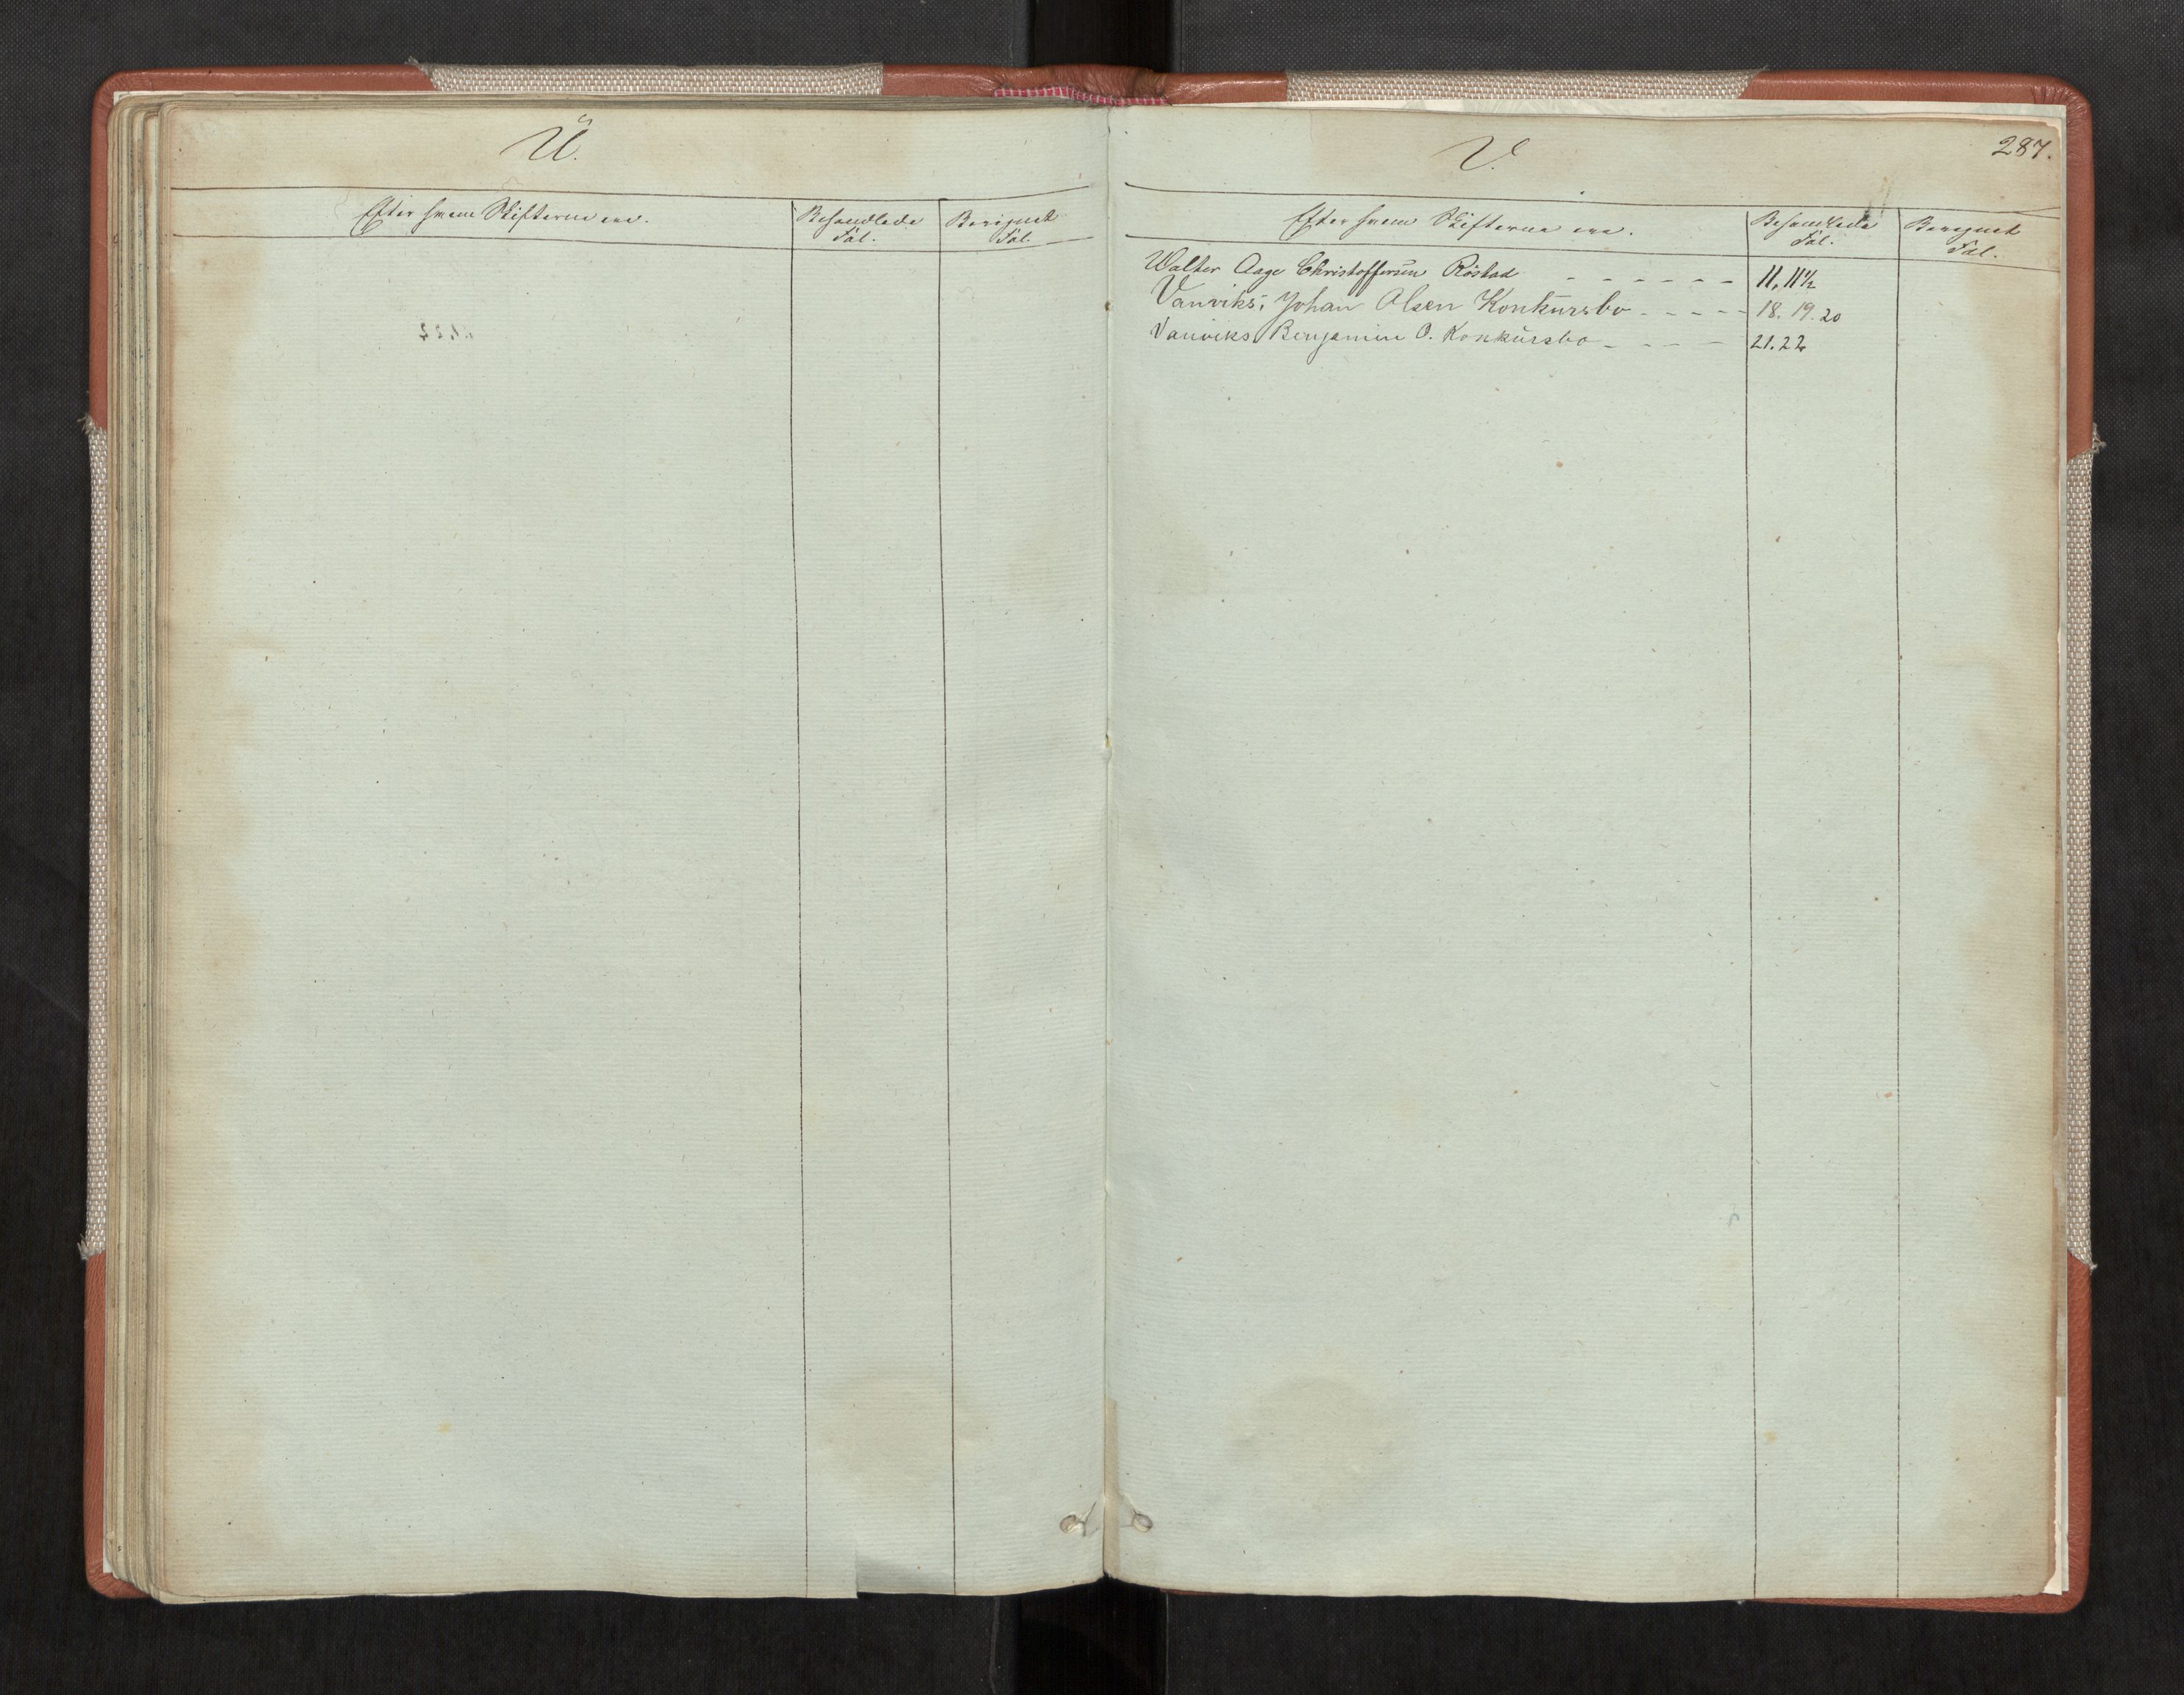 U.
Efter hvem Skifterne ere.
Behandlede
Fol.
Beregnet
Fol.
V.
287.
Efter hvem Skifterne ere.
Behandlede
Fol.
Beregnet
Fol.
Walter Aage Christoffersen Röstad - - - - - - 11, 11½
Vanviks, Johan Olsen Konkursbo - - - - - 18. 19. 20
Vanviks Benjamin O. Konkursbo - - - - 21. 22